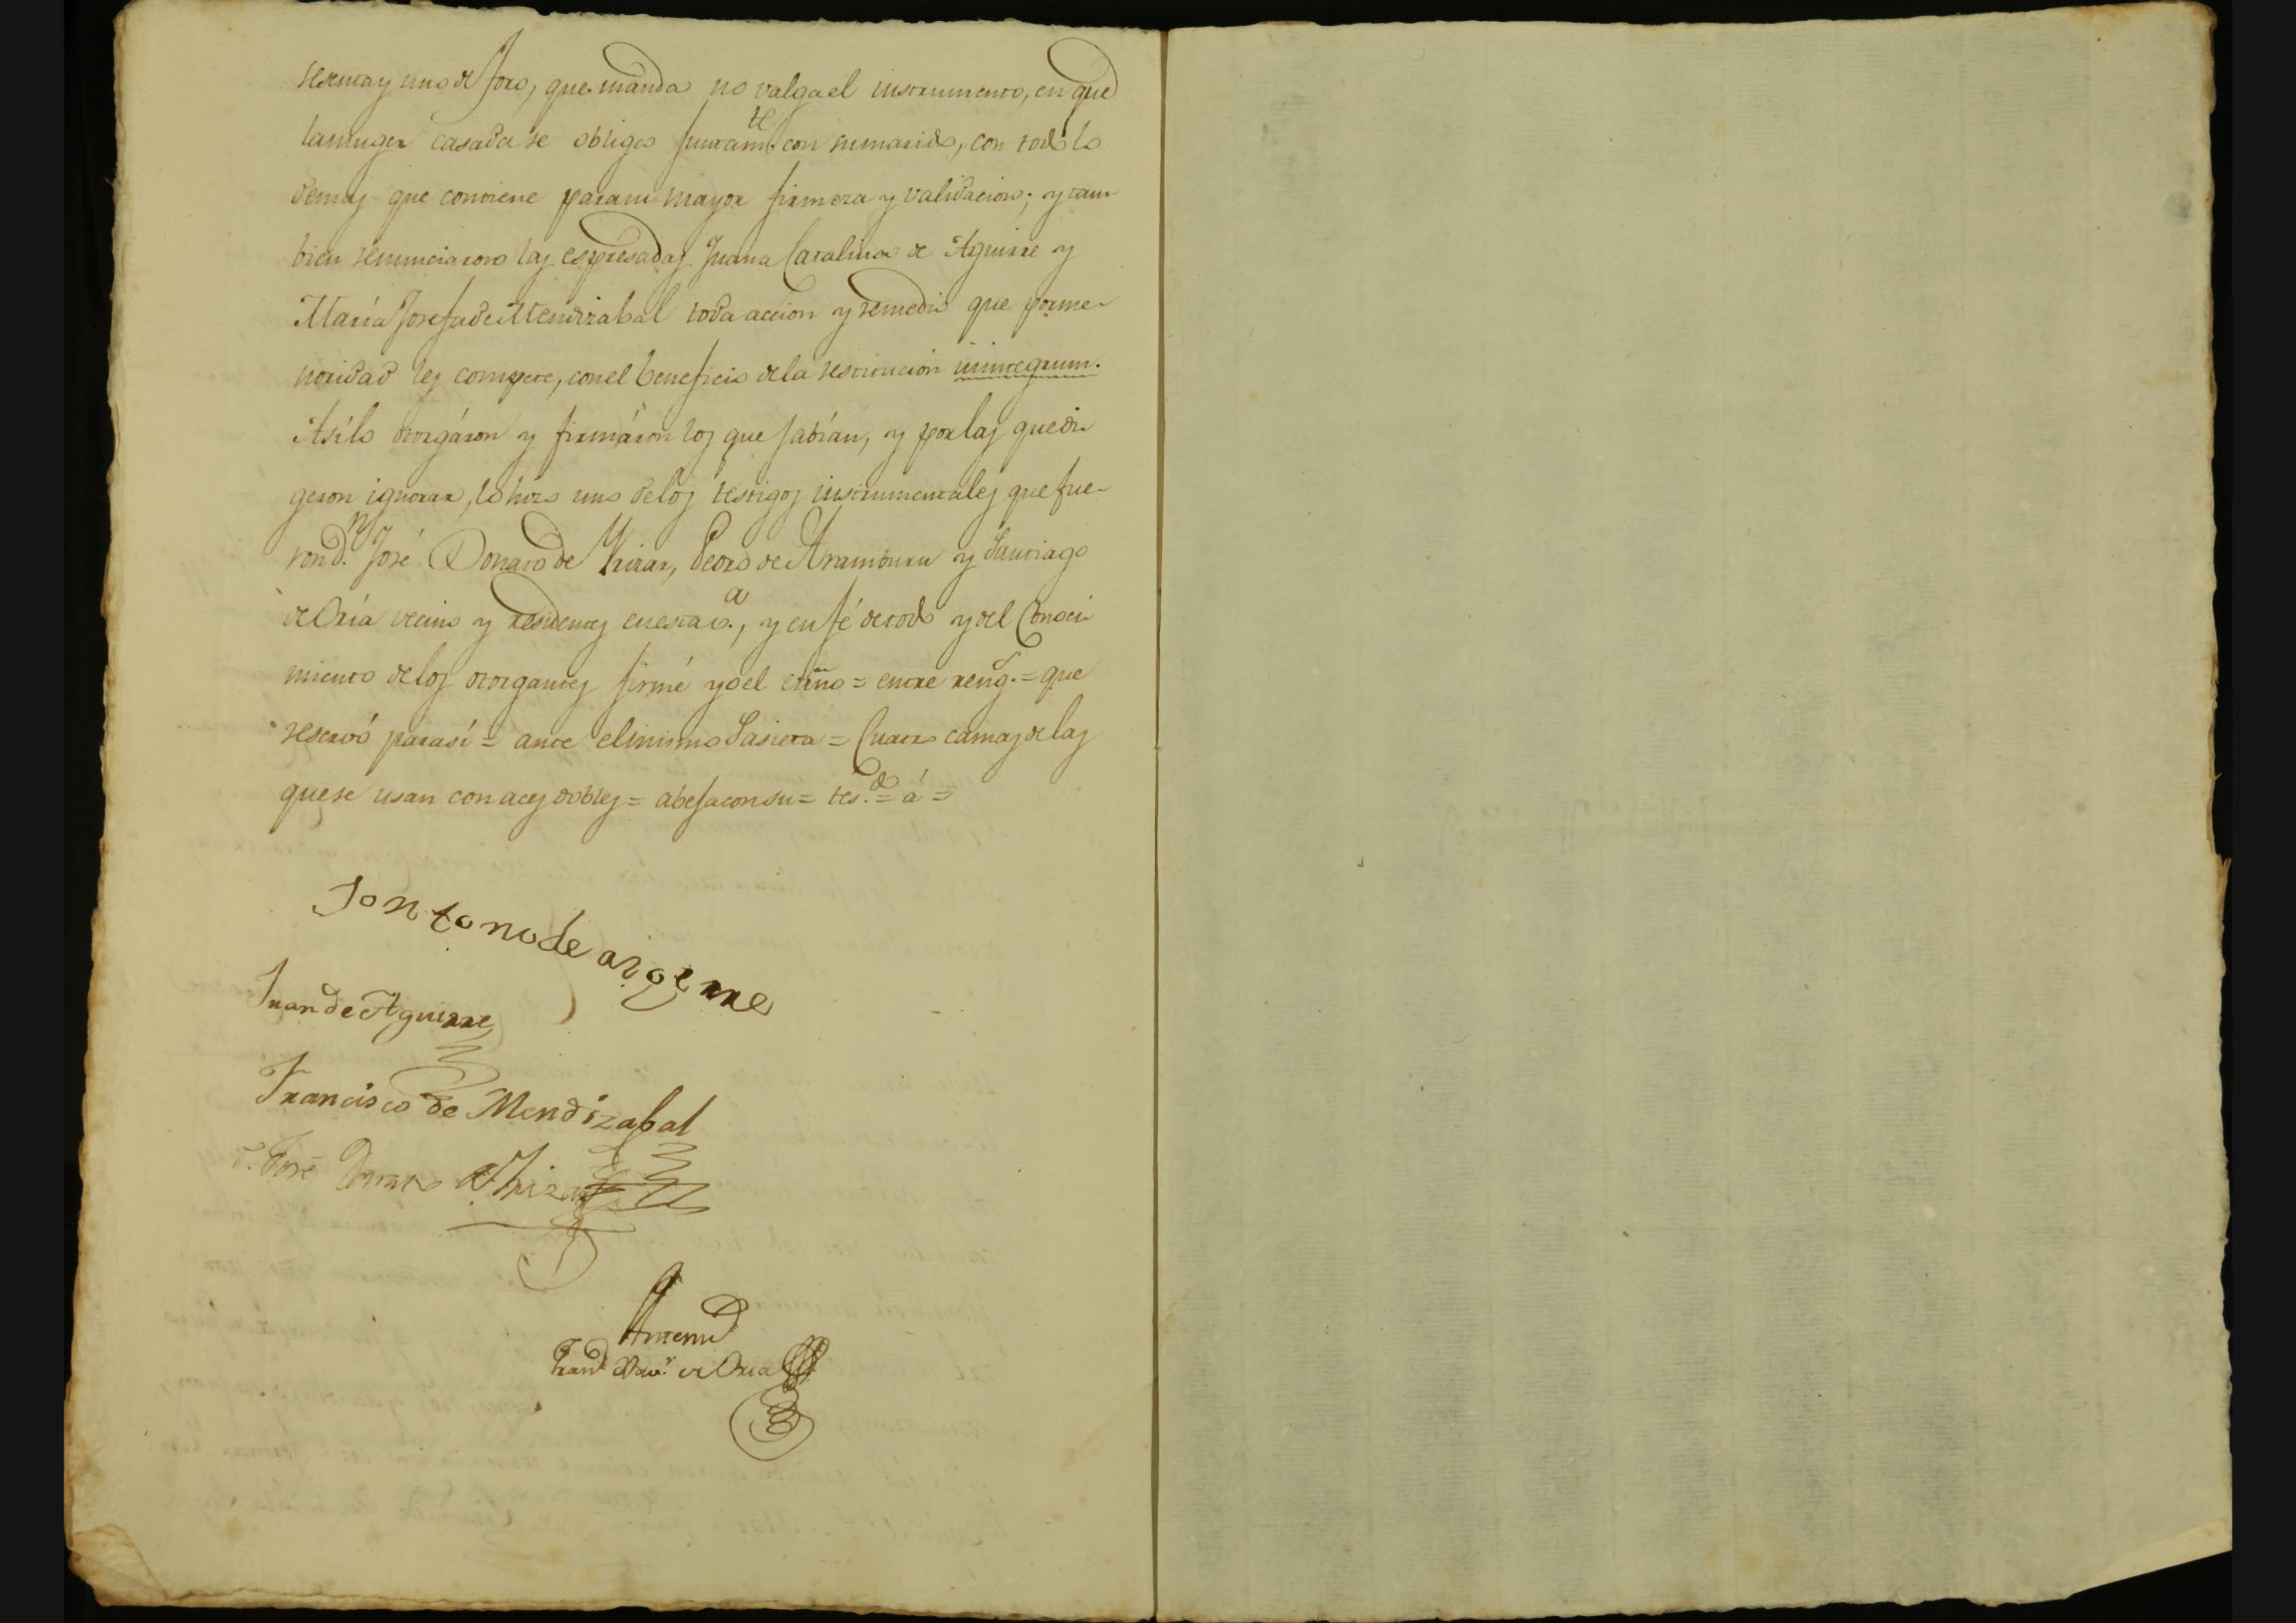 sesenta y uno de Toro, que manda no valga el instrumento, en que
la muger casada se obliga juntam.te con su marido, con todo lo
demas que conviene para su mayor firmeza y validacion; y tam
bien renunciaron las espresadas Juana Catalina de Aguirre y
María Josefa de Mendizabal toda accion y remedio que por me-
noridad les compete, con el beneficio de la restitucion inintegrum.
Así lo otorgáron y firmáron los que sabían, y por las que di
geron ignorar, lo hizo uno de los testigos instrumentales que fue-
ron d.n José Donato de Yrizar, Pedro de Aramburu y Santiago
de Oría vecino y residentes en esta v.a, y en fé de todo y del conoci
miento de los otorgantes firmé yo el essño = entre reng.s = que
reservó para sí = ante el mismo Lasieta = Cuatro camas de las
que se usan con aces dobles = abeja con su = tes.do = á =
Juan de Aguirre
Francisco de Mendizabal
José Donato de Yrizar
Antemi
Fran.co Xav.r de Oria